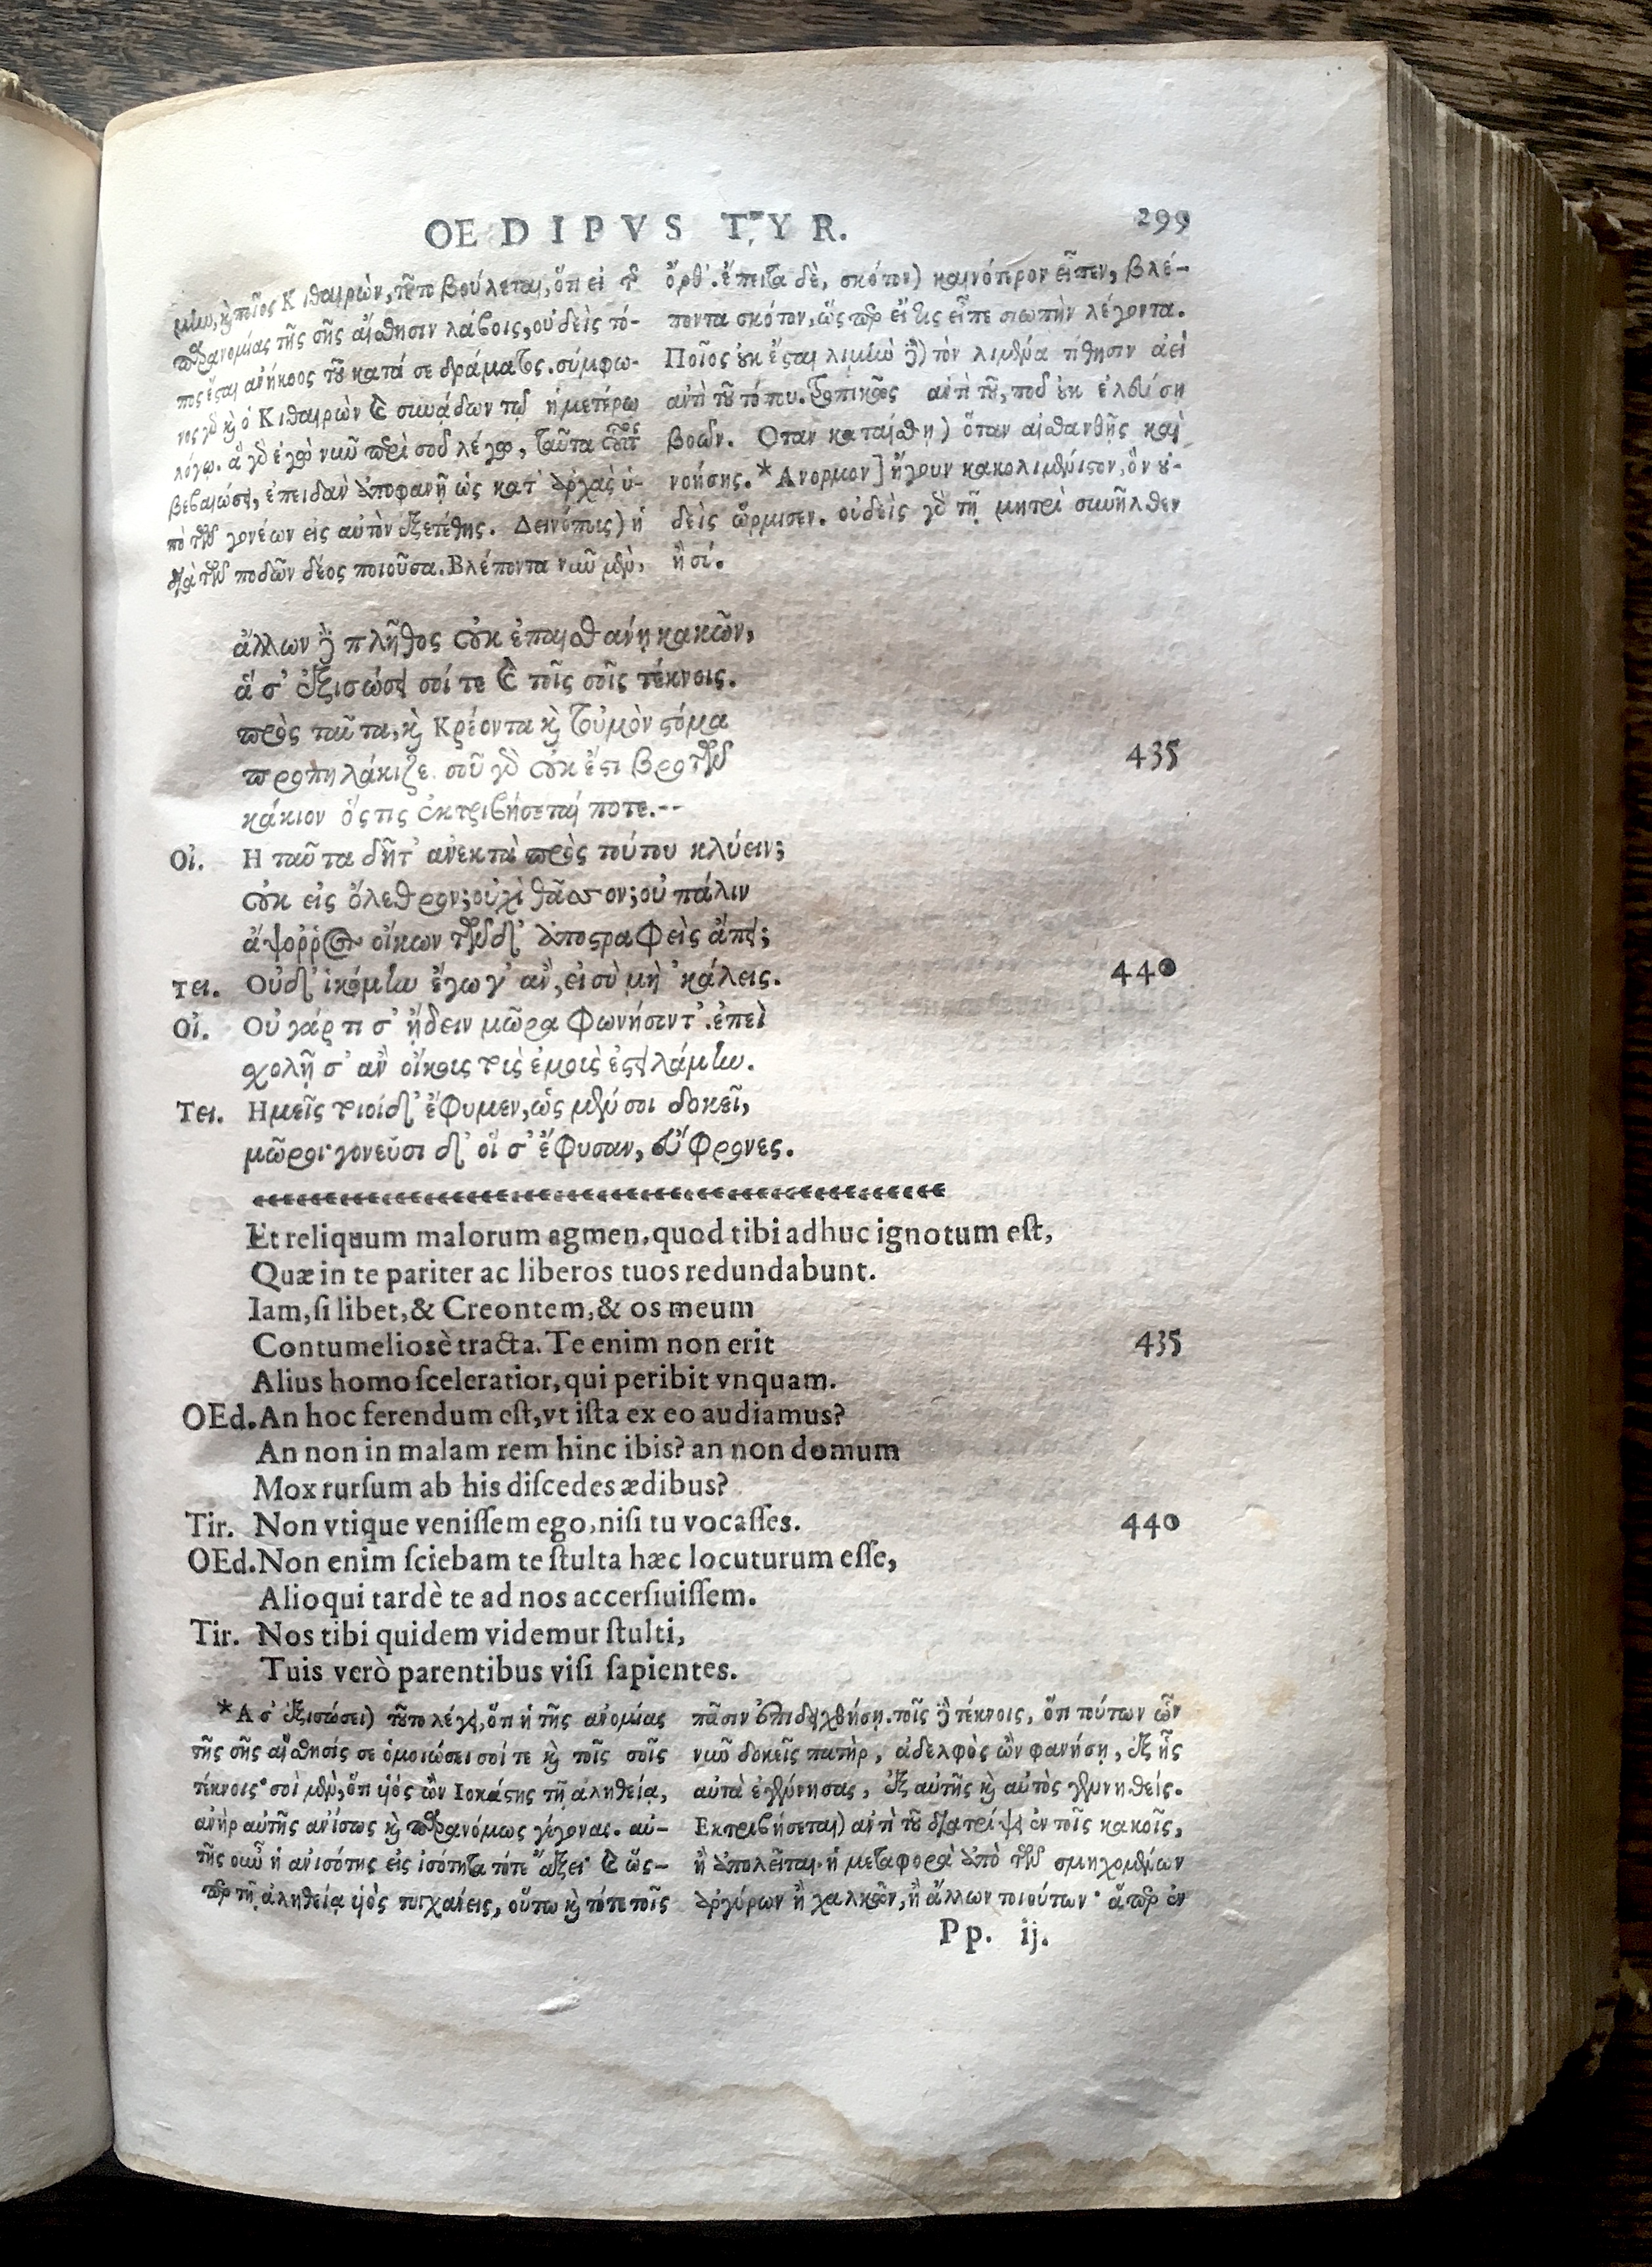 OEDIPVS TYR.
299
μίω, κ̀ ποῖος Κιθαιρὼν, τοῦτο βούλεται, ὅτι εἰ τ̂
παρανομίας τῆς σῆς αἴσθησιν λάβοις, οὐδεὶς τό-
πος ἔσται ἀνήκοος τοῦ κατά σε δράματος. σύμφω-
νος γὸ κ̀ ὁ Κιθαιρὼν καὶ συνᾴδων τῷ ἡμετέρῳ
λόγῳ. ἃ γὸ ἐγὼ νῦν περὶ σοῦ λέγω, ταῦτα
βεβαιώσει, ἐπειδὰν ἀποφανῇ ὡς κατ' ἀρχὰς ὑ-
πὸ τῶν γονέων εἰς αὐτὸν ἐξετέθης. Δεινόπους) ἡ
διὰ τῶν ποδῶν δέος ποιοῦσα. Βλέποντα νῦν μὲν,
ὄρθ'. ἔπειτα δὲ, σκότον) καινότερον εἶπεν, βλέ-
ποντα σκότον, ὥσπερ εἴ τις εἶπε σιωπὴν λέγοντα.
Ποῖος οὐκ ἔσται λιμὴν δὲ) τὸν λιμένα τίθησιν ἀεὶ
ἀντὶ τοῦ τόπου. τοπικῶς ἀντὶ τοῦ, ποῦ οὐκ ἐλεύσῃ
βοῶν. Οταν καταίσθῃ) ὅταν αἰσθανθῇς καὶ
νοήσῃς. *Ανορμον] ἤγουν κακολιμένιστον, ὃν οὐ-
δεὶς ὥρμισεν. οὐδεὶς γὸ τῇ μητρὶ συνῆλθεν
ἢ σύ.
ἄλλων δὲ πλῆθος οὐκ ἐπαισθάνῃ κακῶν,
ἅ σ' ἐξισώσει σοί τε καὶ τοῖς σοῖς τέκνοις.
πρὸς ταῦτα, κ̀ Κρέοντα κ̀ τοὐμὸν στόμα
προπηλάκιζε. σοῦ γὸ οὐκ ἔστι βροτῶν
435
κάκιον ὅστις ἐκτριβήσεταί ποτε.--
Οἰ. Η ταῦτα δῆτ' ἀνεκτὰ πρὸς τούτου κλύειν;
οὐκ εἰς ὄλεθρον; οὐχὶ θᾶσσον; οὐ πάλιν
ἄψοῤῥος οἴκων τῶνδ' ἀποστραφεὶς ἄπει;
Τει. Οὐδ' ἱκόμην ἔγωγ' ἂν, εἰ σὺ μὴ 'κάλεις.
440
Οἰ. Οὐ γάρ τι σ' ᾔδειν μῶρα φωνήσοντ'. ἐπεὶ
σχολῇ σ' ἂν οἴκους τοὺς ἐμοὺς ἐστειλάμην.
Τει. Ημεῖς τοιοίδ' ἔφυμεν, ὡς μέν σοι δοκεῖ,
μῶροι· γονεῦσι δ' οἵ σ' ἔφυσαν, ἔμφρονες.
Et reliquum malorum agmen, quod tibi adhuc ignotum est,
Quæ in te pariter ac liberos tuos redundabunt.
Iam, ſi libet, & Creontem, & os meum
Contumeliosè tracta. Te enim non erit
435
Alius homo ſceleratior, qui peribit vnquam.
OEd. An hoc ferendum eſt, vt iſta ex eo audiamus?
An non in malam rem hinc ibis? an non domum
Mox rurſum ab his diſcedes ædibus?
Tir. Non vtique veniſſem ego, niſi tu vocaſſes.
440
OEd. Non enim ſciebam te ſtulta hæc locuturum eſſe,
Alioqui tardè te ad nos accerſiuiſſem.
Tir. Nos tibi quidem videmur ſtulti,
Tuis verò parentibus viſi ſapientes.
*Α σ' ἐξισώσει) τοῦτο λέγει, ὅτι ἡ τῆς ἀνομίας
τῆς σῆς αἴσθησίς σε ὁμοιώσει σοί τε κ̀ τοῖς σοῖς
τέκνοις· σοὶ μὲν, ὅτι υἱὸς ὢν Ιοκάστης τῇ ἀληθείᾳ,
ἀνὴρ αὐτῆς ἀνίσως κ̀ παρανόμως γέγονας. αὐ-
τῆς οὖν ἡ ἀνισότης εἰς ἰσότητα τότε ἄξει· καὶ ὥς-
περ τῇ ἀληθείᾳ υἱὸς τυγχάνεις, οὕτω κ̀ τότε τοῖς
πᾶσιν ἐπιδειχθήσῃ. τοῖς δὲ τέκνοις, ὅτι τούτων ὧν
νῦν δοκεῖς πατὴρ, ἀδελφὸς ὢν φανήσῃ, ἐξ ἧς
αὐτὰ ἐγέννησας, ἐξ αὐτῆς κ̀ αὐτὸς γεννηθείς.
Εκτριβήσεται) ἀντὶ τοῦ διατρίψει ἐν τοῖς κακοῖς,
ἢ ἀπολεῖται. ἡ μεταφορὰ ἀπὸ τῶν σμηχομένων
ἀργύρων ἢ χαλκῶν, ἢ ἄλλων τοιούτων· ἅπερ ἐν
Pp. ij.